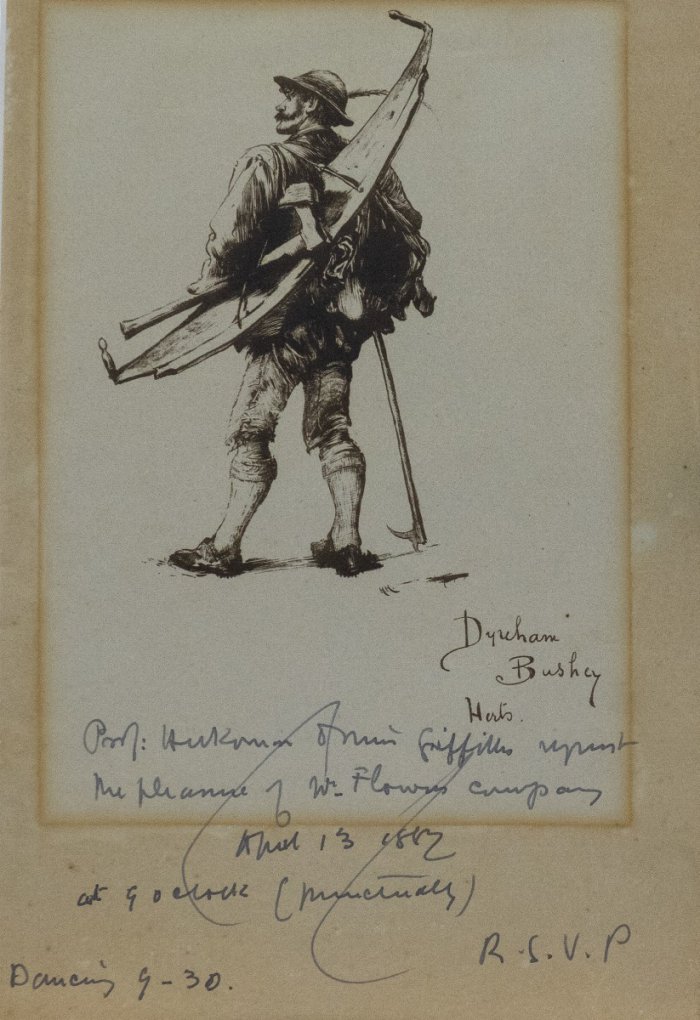 Dyreham
Bushey
Herts.
Prof: Herkomer & Miss Griffiths request
the pleasure of Mr Flowers company
April 13 1887
at 9 oclock (punctually)
R.S.V.P
Dancing 9-30.